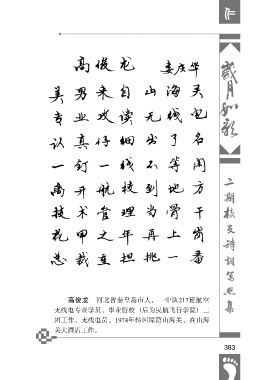 高俊龙 娄庆华
美男来自山海关
专业攻读无线电
认真仔细出了名
一钉一线不等闲
离开航校到地方
技术管理当骨干
花甲之年再上岗
总裁重担挑一番
高俊龙 河北省秦皇岛市人，一中队217班航空
无线电专业学员，毕业留校（后为民航飞行学院）二
团工作。无线电员，1974年转回原籍山海关，在山海
关大酒店工作。
岁月如歌
二期校友诗词写照集
383